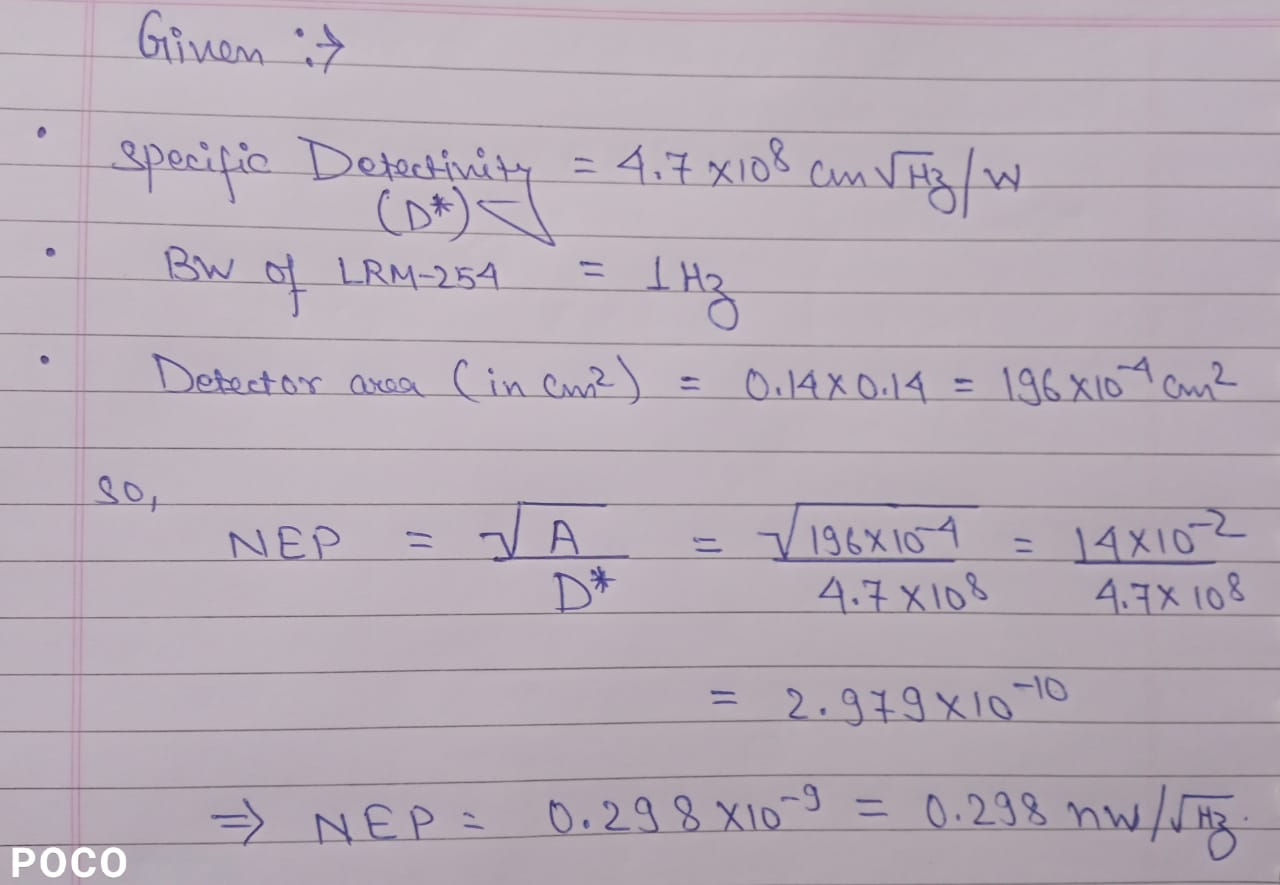 Given :→
• Specific Detectivity = 4.7 × 10⁸ cm√Hz/W
(D*)
• BW of LRM-254 = 1 Hz
• Detector area (in cm²) = 0.14 × 0.14 = 196 × 10⁻⁴ cm²
so,
NEP = √A / D* = √196×10⁻⁴ / 4.7 × 10⁸ = 14 × 10⁻² / 4.7 × 10⁸
= 2.979 × 10⁻¹⁰
⇒ NEP = 0.298 × 10⁻⁹ = 0.298 nW/√Hz.
POCO